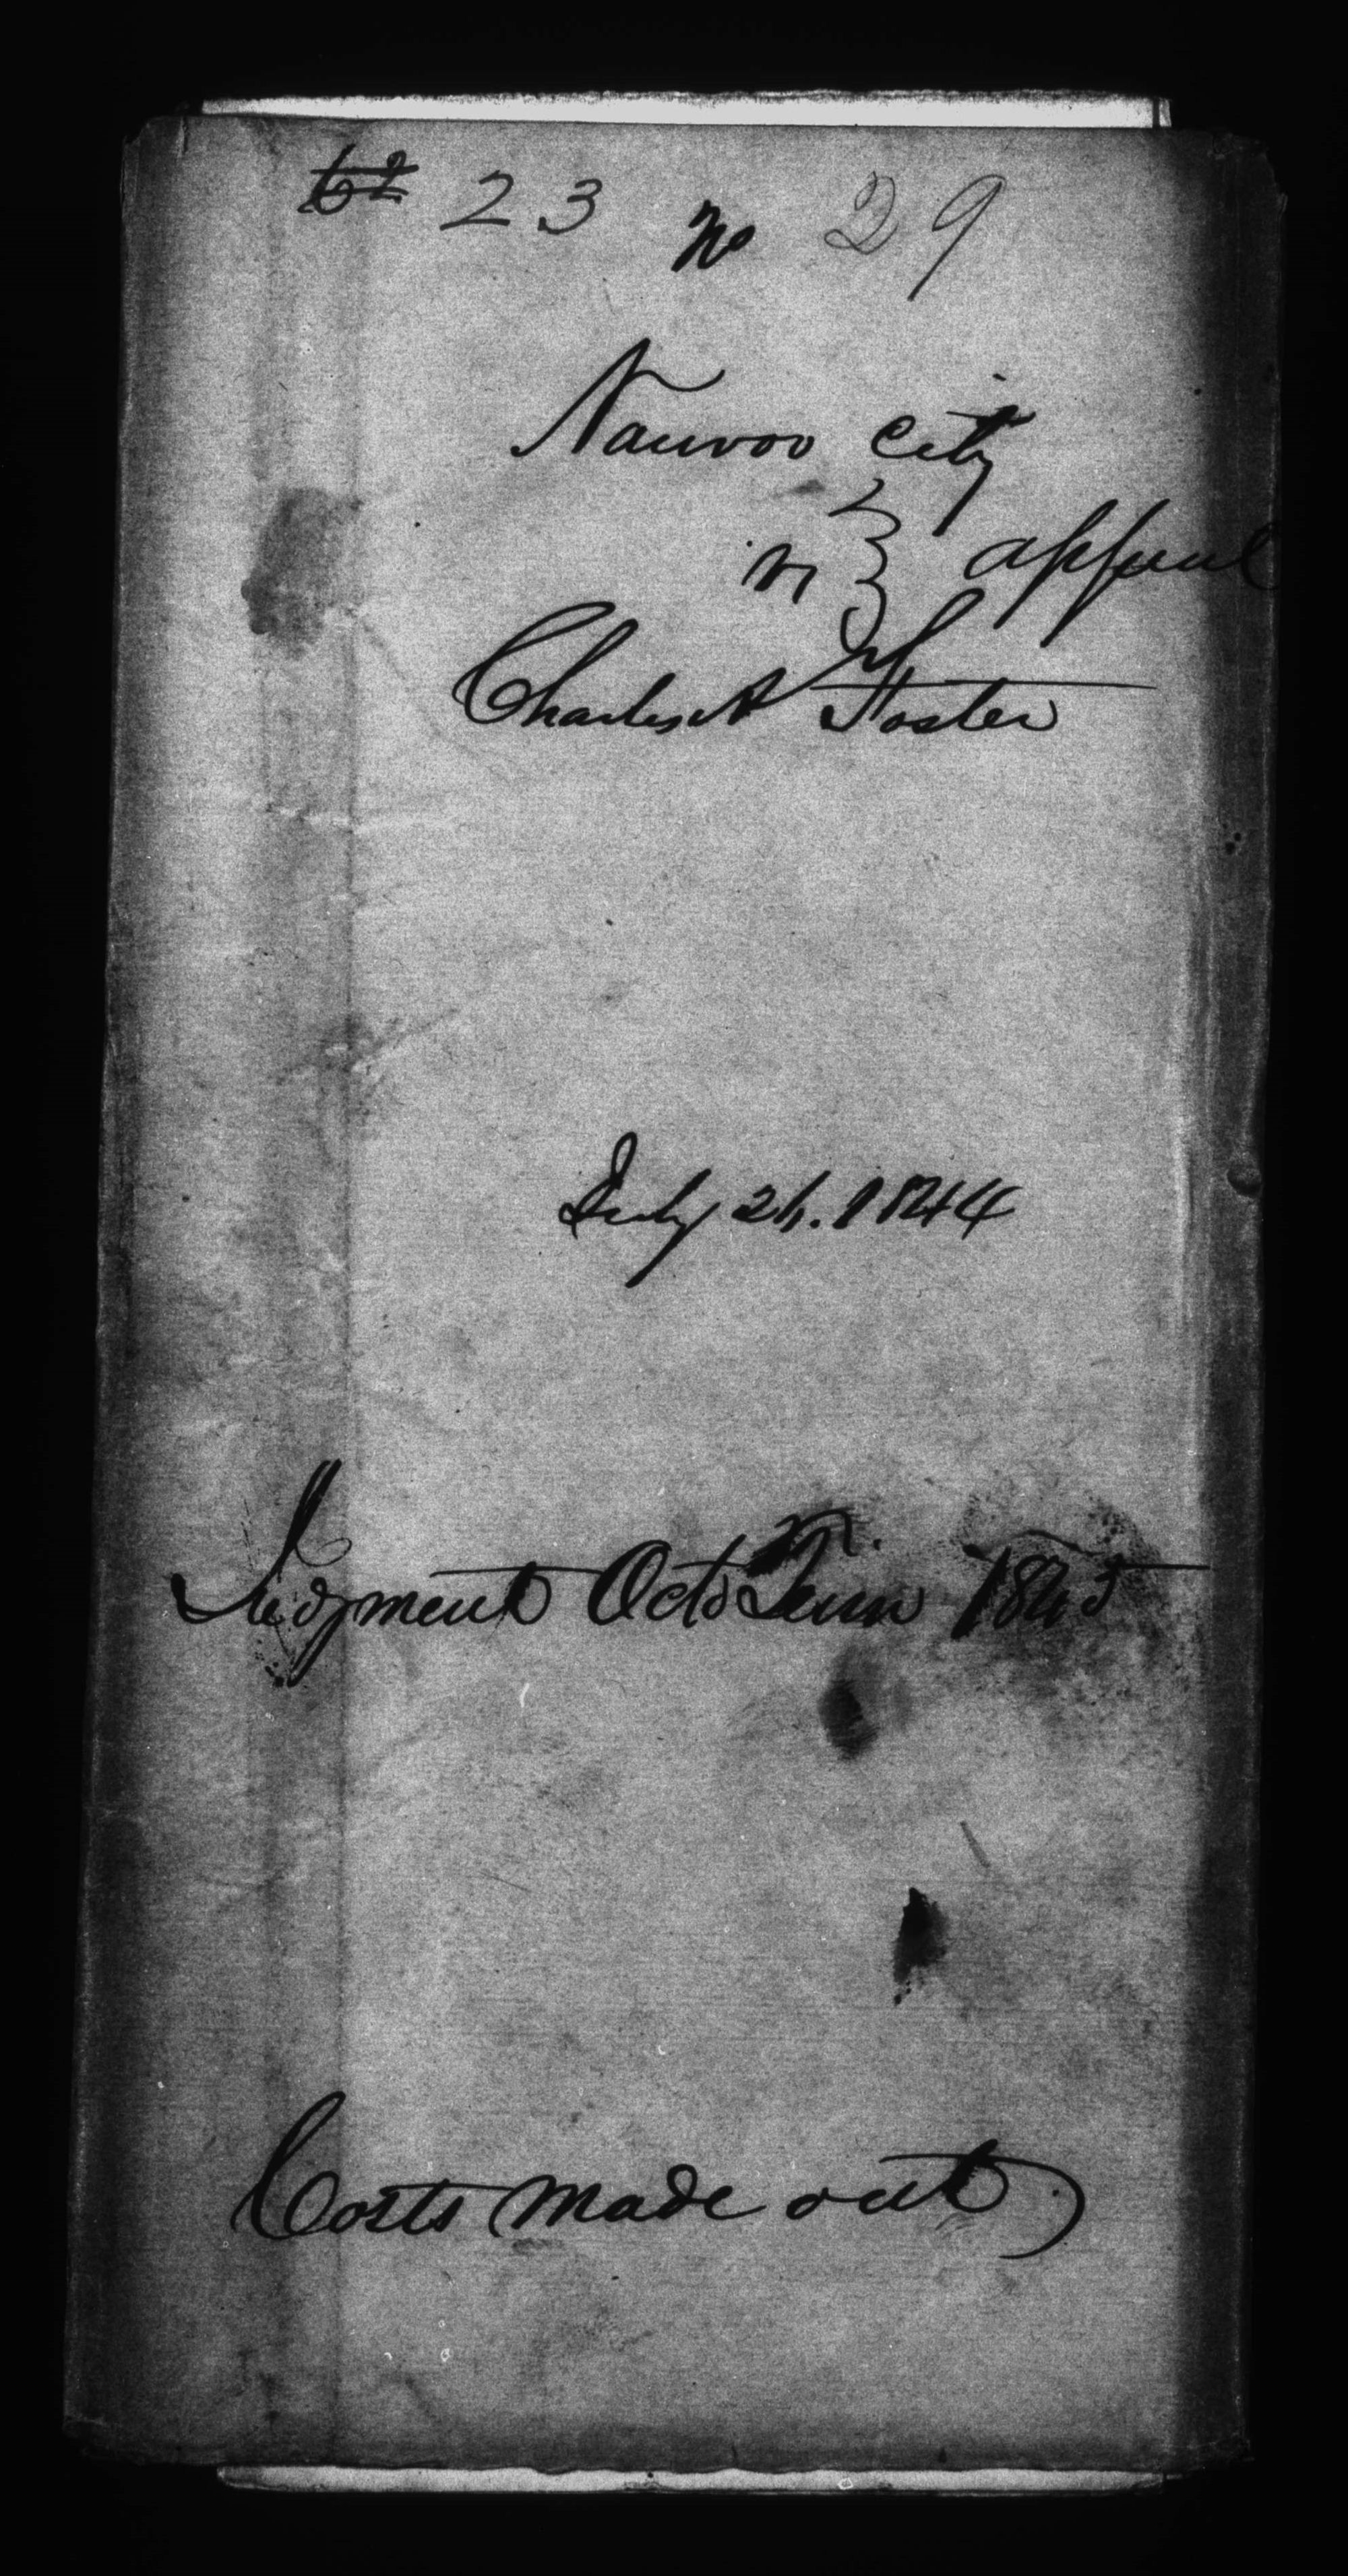 62 23 No 29
Nauvoo City
vs } appeal
Charles A Foster
July 24. 1844
Judgment Octo Term 1845
Costs made out